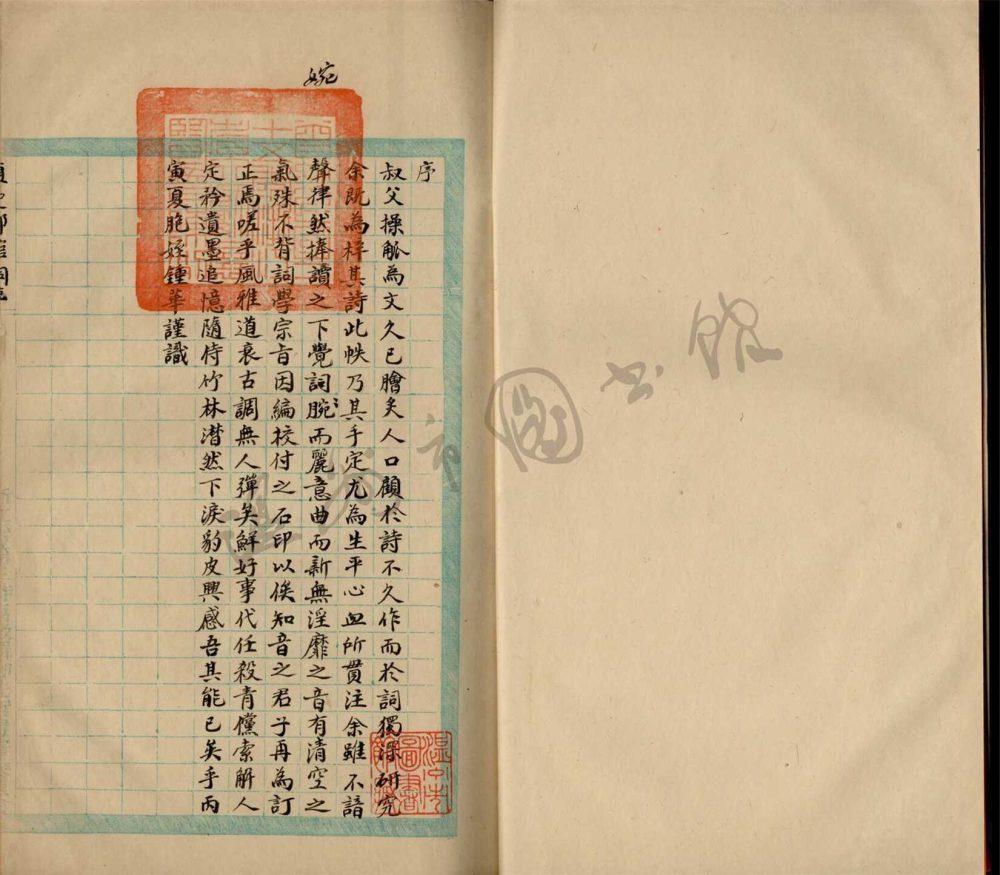 婉
序
叔父操觚為文久已膾炙人口顧於詩不久作而於詞獨深研究
余既為梓其詩此帙乃其手定尤為生平心血所貫注余雖不諳
聲律然捧讀之下覺詞腕而麗意曲而新無淫靡之音有清空之
氣殊不背詞學宗旨因編校付之石印以俟知音之君子再為訂
正焉嗟乎風雅道衰古調無人彈矣鮮好事代任殺青儻索解人
定矜遺墨追憶隨侍竹林潸然下淚豹皮興感吾其能已矣乎丙
寅夏胞姪鍾華謹識
溫州市
圖書
館藏
溫州市圖書館